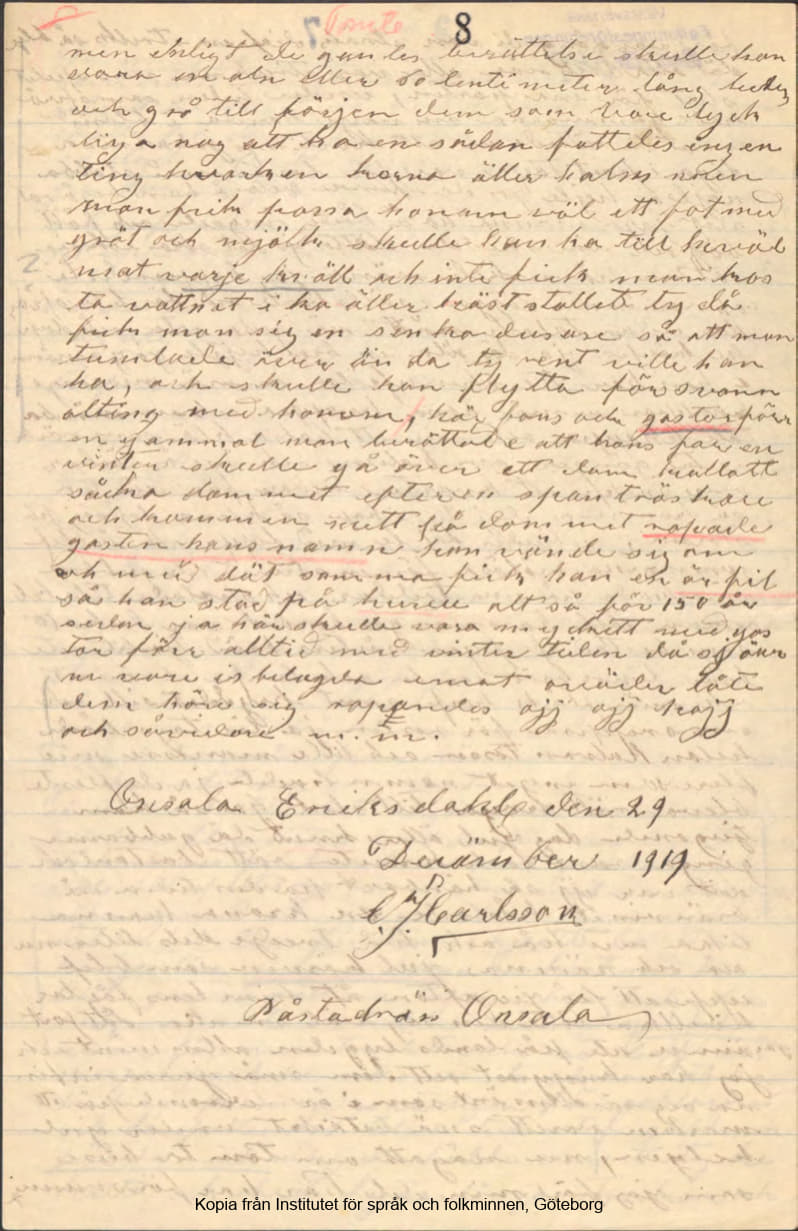 Tomte
7 8
men enligt de gamles berättelse skulle han
vara en aln eller 60 sentimeter lång
och grå till färjen dem som vore lyck
liga nog att ha en sådan fattedes ingen
ting hvarken korna äller halm men
man fick passa honom väl ett fat med
gröt och mjölk skulle han ha till kväl
mat varje kväll och inte fick man kas
ta vattnet i ko äller häst stallet ty då
fick man sig en sinka dusare så att man
tumlade över ända ty rent ville han
ha, och skulle han flytta försvann
alting med honom, här fans och gastar förr
en gammal man berättade att hans far en
vinter skulle gå över ett dam kallatt
såcka dammet efter en spann träskare
och kommen mitt på dammet ropade
gasten hans namn han vände sig om
och med dät samma fick han en örfil
så han stod på huvu alt så för 150 år
sedan ja här skulle vara mycket med gas
tar förr alltid med vinter tiden då sjöar
na vore isbelagda emot oväder läte
dem höra sig ropandes ojj ojj hojj
och såvidare m.m.
Onsala Eriksdahl den 29
Decämber 1919
C J Carlsson
Båtsdräng Onsala
Kopia från Institutet för språk och folkminnen, Göteborg